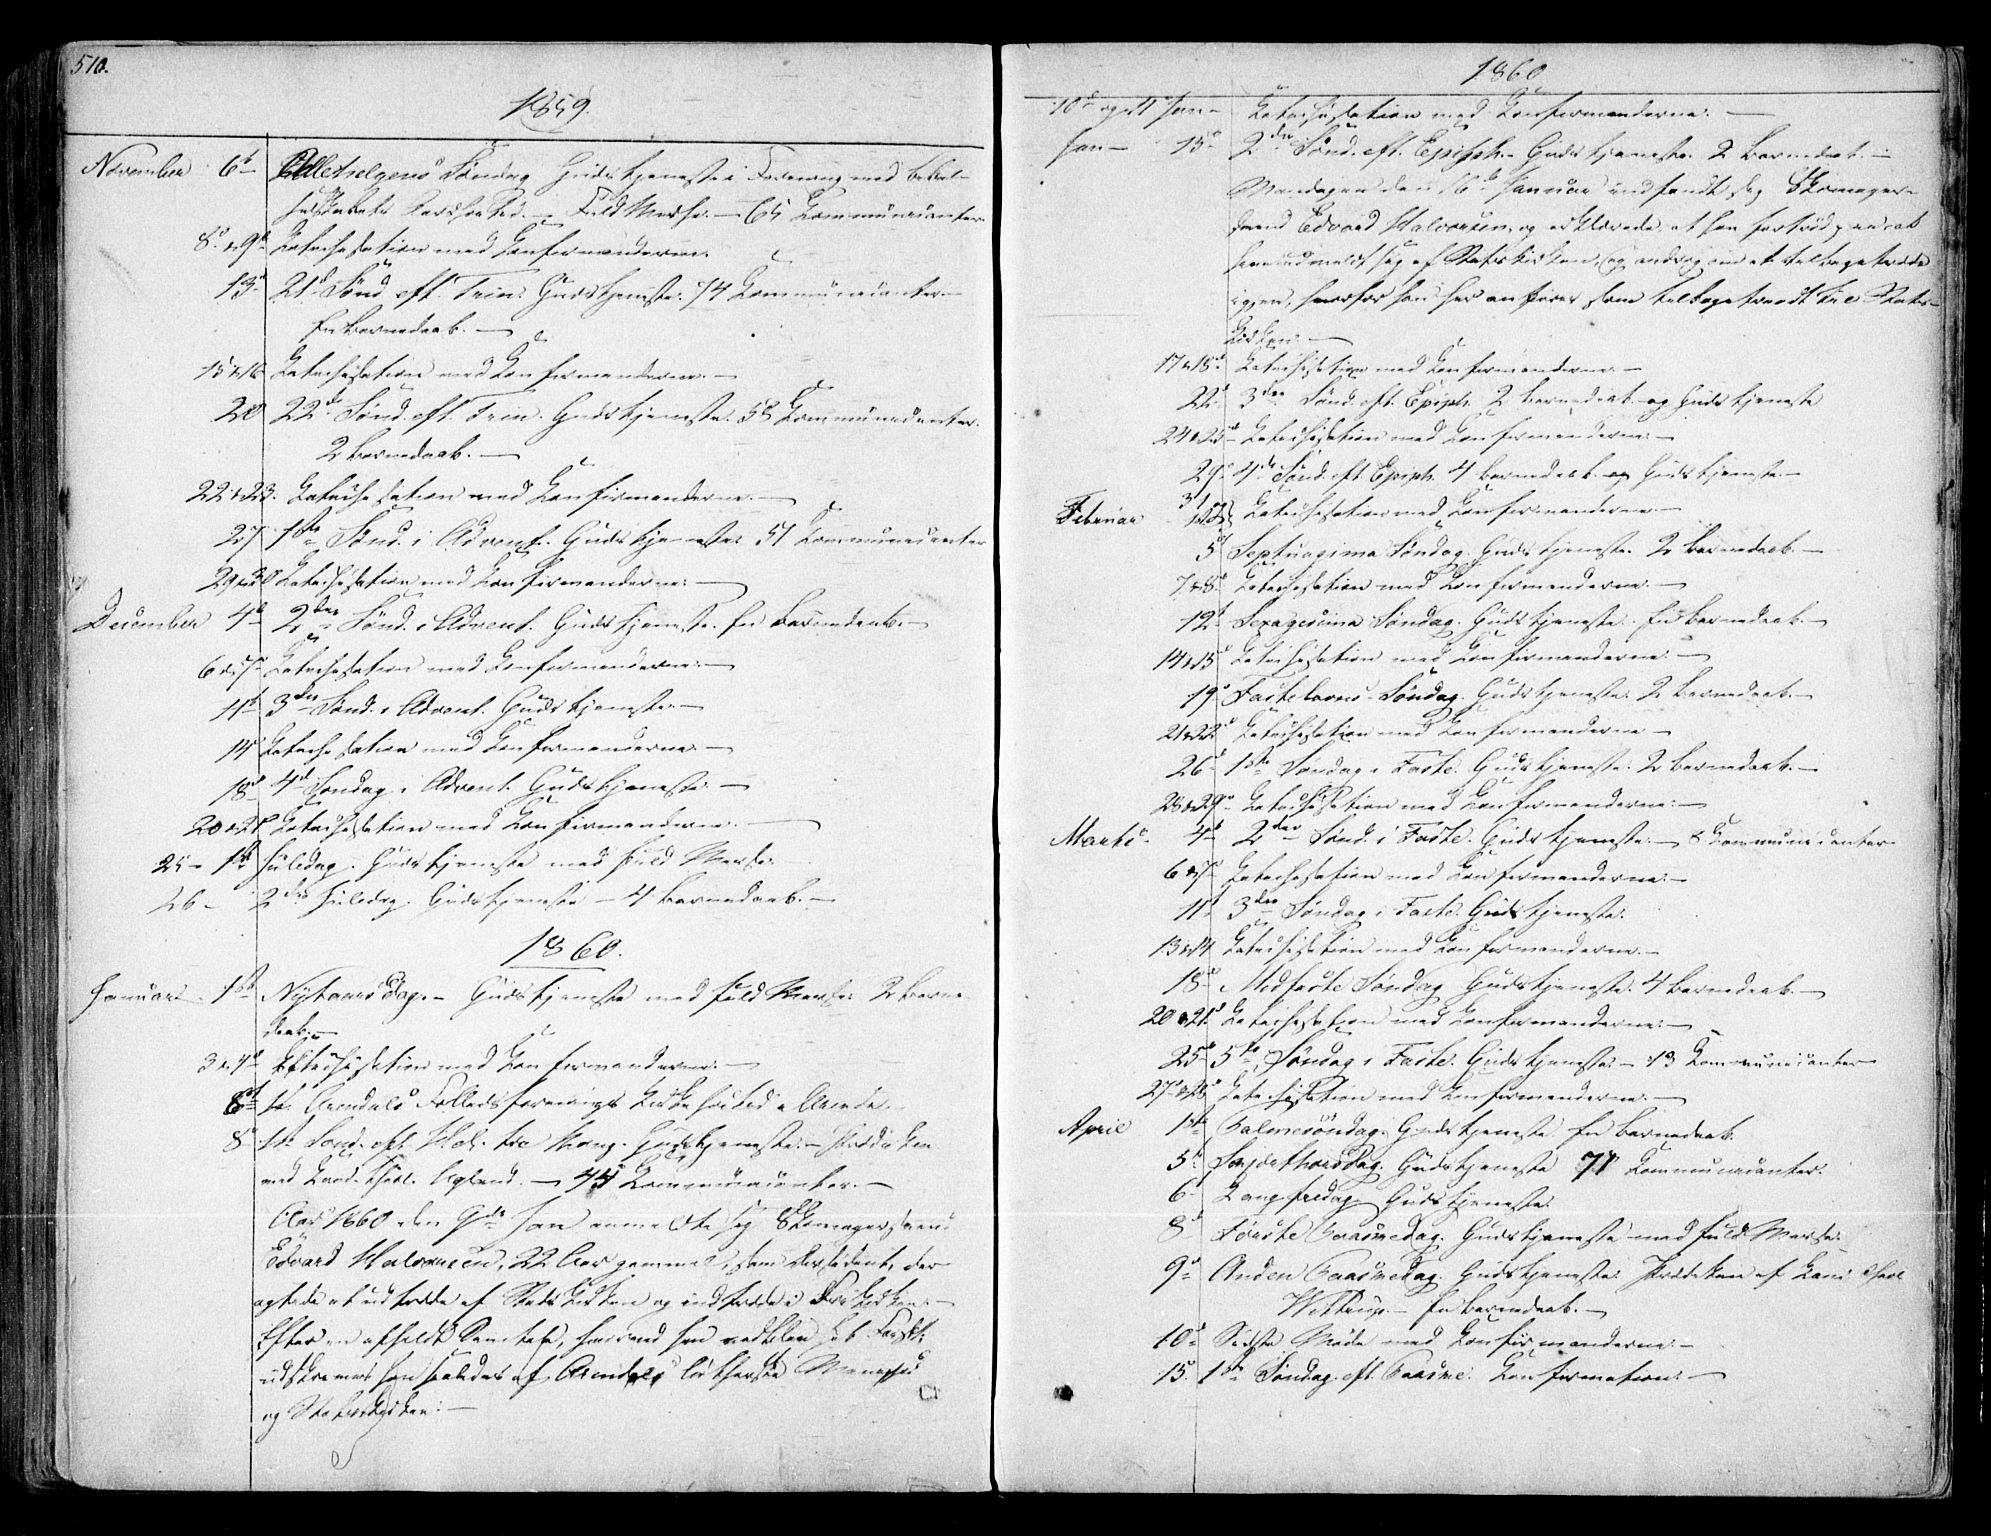 510.
1859.
November 6te Allehelgens Søndag Gudstjeneste i Forening med
Fuld Messe. — 65 Communicanter
8de & 9de Catechisation med Confirmanderne.
13de 21de Sønd. eft. Trin. Gudstjeneste. 74 Communicanter. —
En Barnedaab. —
15 & 16 Catechisation med Confirmanderne. —
20 22de Sønd. eft. Trin. Gudstjeneste. 58 Communicanter.
2 Barnedaab. —
22 & 23. Catechisation med Confirmanderne. —
27 1ste Sønd. i Advent. Gudstjeneste. 51 Communicanter
29 & 30 Catechisation med Confirmanderne. —
December 4de 2den Sønd. i Advent. Gudstjeneste. En Barnedaab. —
6 & 7de Catechisation med Confirmanderne. —
11te 3die Sønd. i Advent. Gudstjeneste. —
14de Catechisation med Confirmanderne. —
18de 4de Søndag i Advent. Gudstjeneste. —
20 & 21de Catechisation med Confirmanderne. —
25 – 1ste Juledag. Gudstjeneste med fuld Messe.
26 – 2den Juledag. Gudstjeneste – 4 Barnedaab. —
1860.
Januar 1ste Nytaarsdag. – Gudstjeneste med fuld Messe. 2 Barne-
daab. —
3 & 4de Catechisation med Confirmanderne. —
6te Arendals Fælledsforenings
8de 1ste Sønd. eft. Hel. tre Kong. Gudstjeneste. – Prædiken
ved Cand. theol. Ugland. — 45 Communicanter. —
Aar 1860 den 9de Jan anmeldte sig Skomagersvend
Edvard Halvorsen, 22 Aar gammel, som Dissident, der
agtede at udtræde af Statskirken og indtræde i Frikirken. —
Efter en afholdt Samtale, hvorved han
udskreves han saaledes af Arendals lutherske Menighed
og Statskirken. —
1860
10de og 11 Jan – Catechisation med Confirmanderne. —
Jan – 15de 2den Sønd. eft. Epiph. – Gudstjeneste. 2 Barnedaab. —
Mandagen den 16de Januar indfandt sig Skomager-
svend Edvard Halvorsen, og erklærede, at han fortrød, at
have udmeldt sig af Statskirken, og at tilbagetræde
igjen, hvorfor han her anføres som tilbagetraadt til Stats-
kirken. —
17 & 18de Catechisation med Confirmanderne. —
22de 3die Sønd. eft. Epiph. 2 Barnedaab og Gudstjeneste
24 & 25de Catechisation med Confirmanderne. —
29de 4de Sønd. eft. Epiph. 4 Barnedaab og Gudstjeneste. —
31
Februar Catechisation med Confirmanderne. —
5te Septuagesima Søndag. Gudstjeneste. 2 Barnedaab. —
7 & 8de Catechisation med Confirmanderne. —
12te Sexagesima Søndag. Gudstjeneste. En Barnedaab. —
14 & 15de Catechisation med Confirmanderne. —
19de Fastelavns-Søndag. Gudstjeneste. 2 Barnedaab. —
21 & 22de Catechisation med Confirmanderne —
26de 1ste Søndag i Faste. Gudstjeneste. 2 Barnedaab. —
28 & 29de Catechisation med Confirmanderne. —
Marts. 4de 2den Sønd. i Faste. Gudstjeneste. – 8 Communicanter.
6 & 7de Catechisation med Confirmanderne. —
11te 3die Søndag i Faste. Gudstjeneste.
13 & 14 Catechisation med Confirmanderne. —
18de Midfaste Søndag Gudstjeneste. 4 Barnedaab. —
20 & 21de Catechisation med Confirmanderne. —
25de 5te Søndag i Faste. Gudstjeneste. – 13 Communicanter
27de & 28de Catechisation med Confirmanderne. —
April 1ste Palmesøndag. Gudstjeneste En Barnedaab.
5te Skjærthorsdag. Gudstjeneste 71 Communicanter.
6te Langfredag Gudstjeneste.
8de Første Paaskedag. Gudstjeneste med fuld Messe.
9de Anden Paaskedag. Gudstjeneste. Prædiken af Cand. theol
En Barnedaab. —
10de Sidste Møde med Confirmanderne. —
15de 1ste Søndag eft. Paaske. Confirmation. —